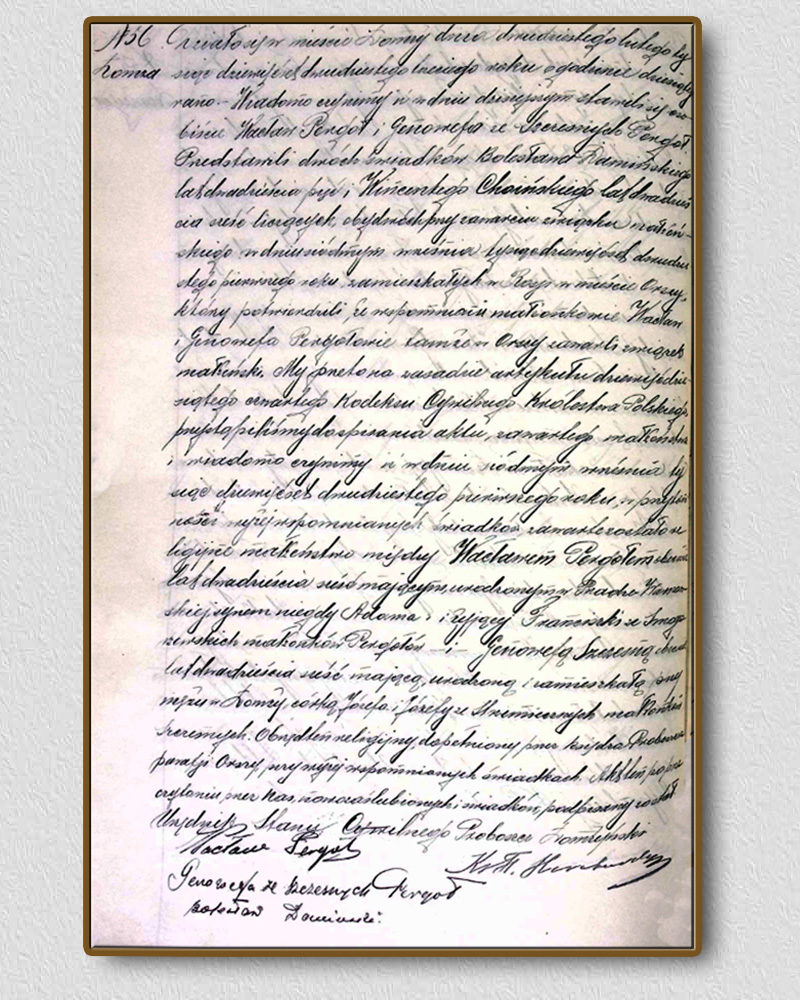 №56. Działo się w mieście Łomży dnia dwudziestego lutego ty
Łomża siąc dziewięćset dwudziestego trzeciego roku o godzinie dziesiątej
rano. Wiadomo czynimy iż w dniu dzisiejszym stawili się oso
biście Wacław Pergoł i Genowefa ze Szczesnych Pergoł
Przedstawili dwóch świadków Bolesława Kamińskiego
lat dwadzieścia pięć i Wincentego Choińskiego lat dwadzieś
cia sześć liczących, obydwóch przy zawarciu związku małżeń-
skiego w dniu siódmym września tysiąc dziewięćset dwudzie
stego pierwszego roku zamieszkałych w Rosji w mieście Orszy,
którzy potwierdzili, że wspomniani małżonkowie Wacław
i Genowefa Pergołowie tamże w Orszy zawarli związek
małżeński. My przeto na zasadzie artykułu dziewięćdzie
siątego czwartego Kodeksu Cywilnego Królestwa Polskiego,
przystąpiliśmy do spisania aktu, zawartego małżeństwa
i wiadomo czynimy iż w dniu siódmym września ty
siąc dziewięćset dwudziestego pierwszego roku, w przytom
ności wyżej wspomnianych świadków zawarte zostało re
ligijne małżeństwo między Wacławem Pergołem
lat dwadzieścia sześć mającym, urodzonym w
skiej synem niegdy Adama i żyjącej Franciszki ze Smo
rzewskich małżonków Pergołów — i — Genowefą Szczesną
lat dwadzieścia sześć mającą, urodzoną i zamieszkałą przy
w Łomży, córką Józefa i Józefy ze małżonków
Szczesnych. Obrządek religijny dopełniony przez księdza Proboszcza
parafji Orszy, przy wyżej wspomnianych świadkach. Akt ten po prze
czytaniu przez Nas, nowozaślubionych i świadków, podpisany został
Urzędnik Stanu Cywilnego Proboszcz Łomżyński
Wacław Pergoł
Genowefa ze Szczesnych Pergoł
Bolesław